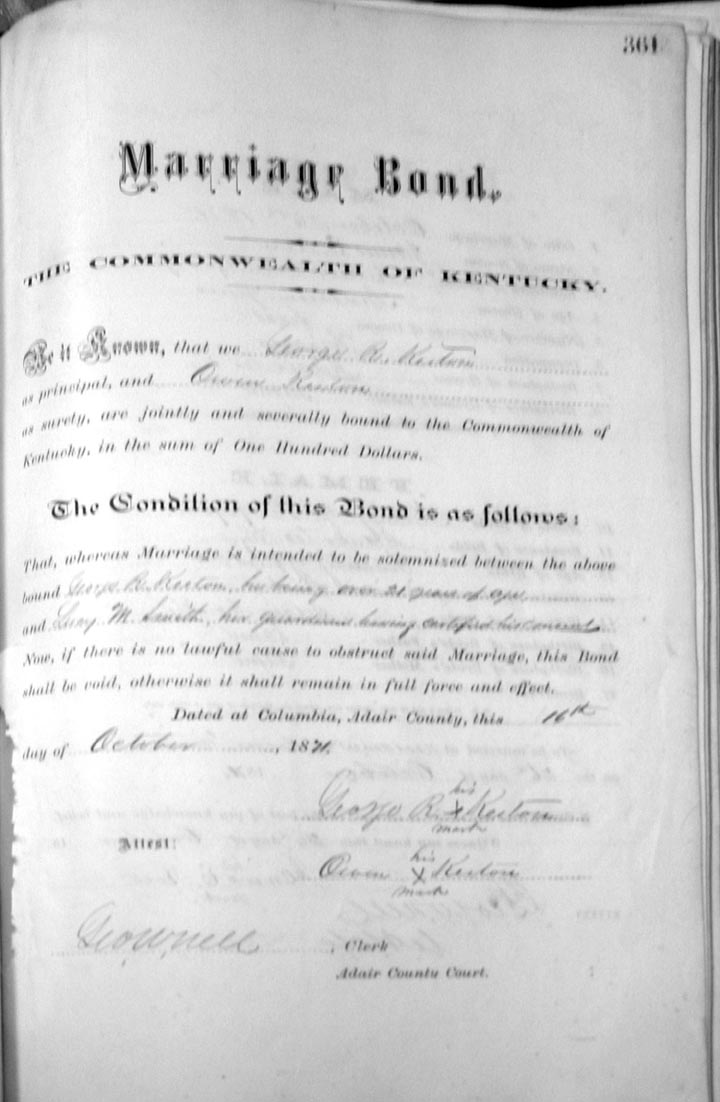 361
Marriage Bond.
THE COMMONWEALTH OF KENTUCKY.
Be it Known, that we George R. Keeton
as principal, and Owen Keeton
as surety, are jointly and severally bound to the Commonwealth of
Kentucky, in the sum of One Hundred Dollars.
The Condition of this Bond is as follows:
That, whereas Marriage is intended to be solemnized between the above
bound George R. Keeton, he being over 21 years of age
and Lucy M. Smith, her guardian having certified his consent
Now, if there is no lawful cause to obstruct said Marriage, this Bond
shall be void, otherwise it shall remain in full force and effect.
Dated at Columbia, Adair County, this 16th
day of October, 1871.
his
George R. X Keeton
mark
Attest:
his
Owen X Keeton
mark
Geo W Nell, Clerk
Adair County Court.